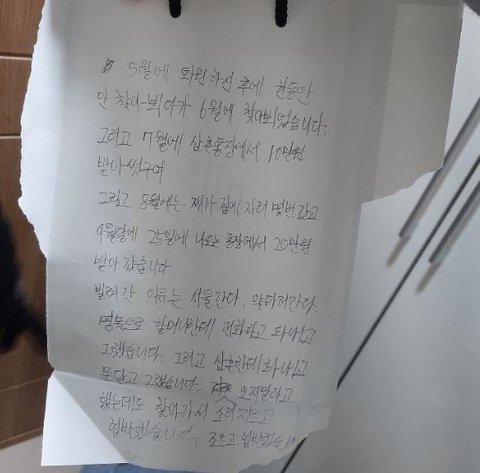 5월에 퇴원하신 후에 한동안
안 찾아뵈다가 6월에 찾아뵈었습니다.
그리고 7월에 삼촌통장에서 10만원
받아썼구여
그리고 8월에는 제가 집에 자러 몇번갔고
9월달에 25일에 나오는 통장에서 20만원
받아 갔습니다
빌려간 이유는 서울간다, 약타러간다.
명목으로 할머니한테 전화하고 화내고
그랬습니다. 그리고 삼촌한테 화내고
문닫고 그랬습니다. 오지말라고
했는데도 찾아가서 소리지르고
협박했습니다. 조르고 협박했습니다